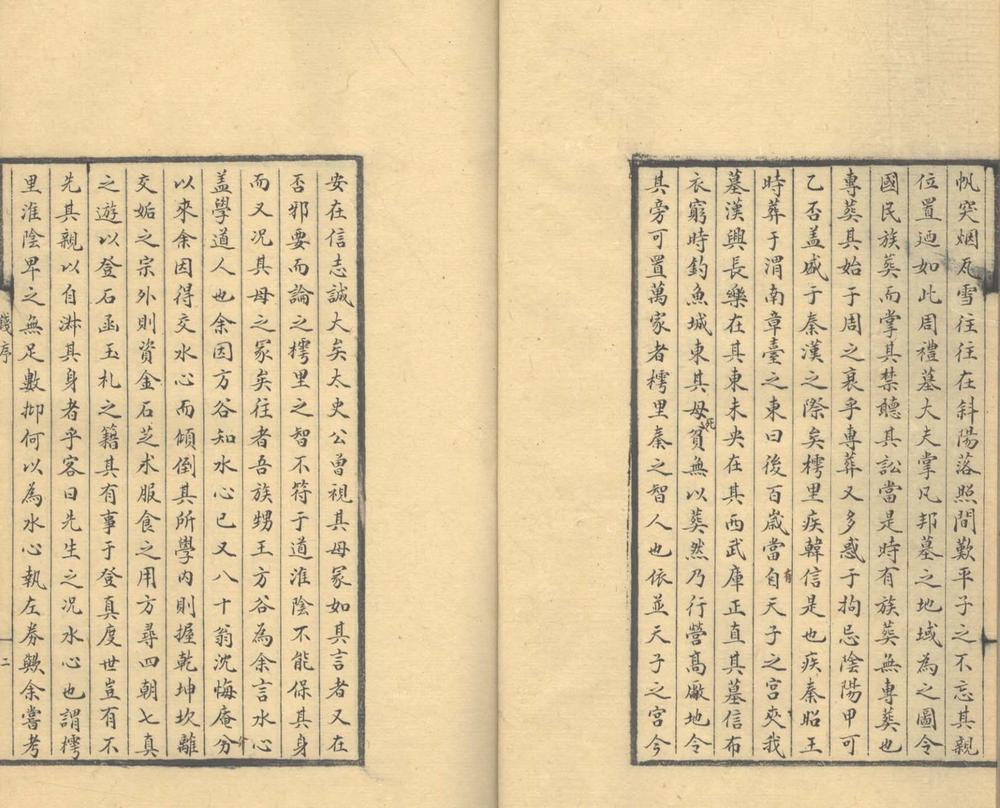 帆突烟瓦雪往往在斜陽落照間歎平子之不忘其親
位置迺如此周禮墓大夫掌凡邦墓之地域為之圖令
國民族葬而掌其禁聽其訟當是時有族葬無專葬也
專葬其始于周之衰乎專葬又多惑于拘忌陰陽甲可
乙否盖感于秦漢之際矣樗里疾韓信是也疾秦昭王
時葬于渭南章臺之東曰後百歲當自天子之宮夾我
有
墓漢興長樂在其東未央在其西武庫正直其墓信布
衣窮時釣魚城東其母貧無以葬然乃行營髙厰地令
死
其旁可置萬家者樗里秦之智人也依並天子之宮今
安在信志誠大矣太史公曽視其母冢如其言者又在
否邪要而論之樗里之智不符于道淮陰不能保其身
而又况其母之冢矣往者吾族甥王方谷為余言水心
盖學道人也余因方谷知水心已又八十翁沈悔庵分
介
以來余因得交水心而傾倒其所學内則握乾坤坎離
交姤之宗外則資金石芝术服食之用方尋四朝七真
之遊以登石函玉札之籍其有事于登真度世豈有不
先其親以自淋其身者乎客曰先生之况水心也謂樗
里淮陰卑之無足數抑何以為水心執左劵歟余嘗考
序
二